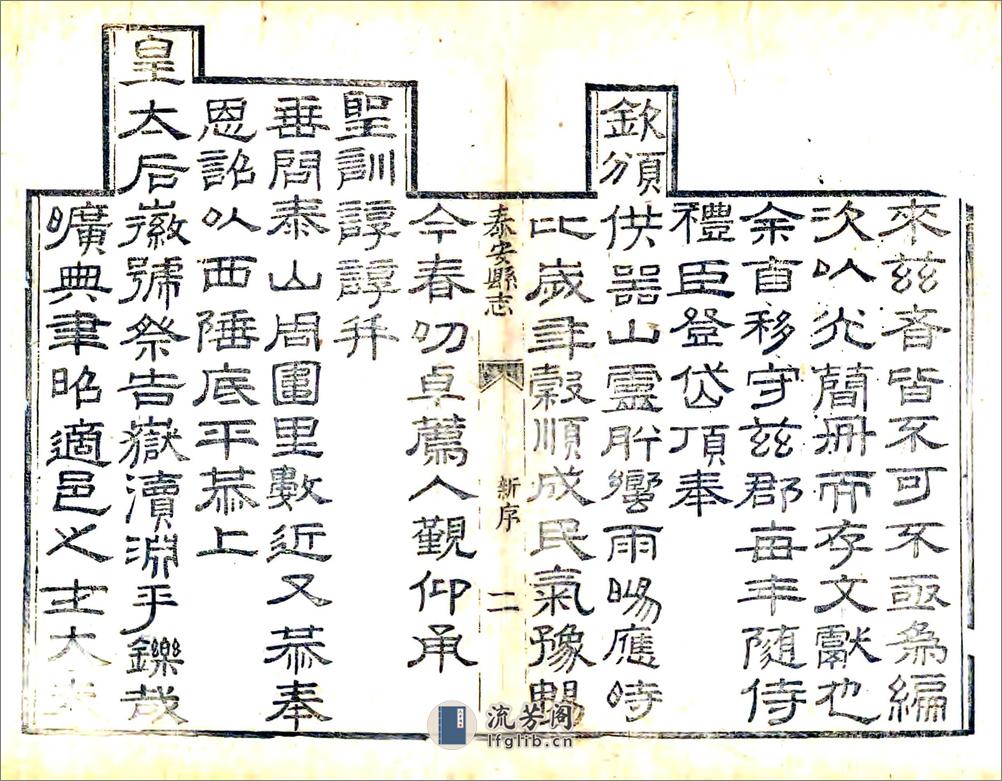 來茲者皆不可不亟為編
次以光簡冊而存文獻也
余自移守茲郡每年隨侍
禮臣登岱頂奉
欽頒
供器山靈肸蠁雨暘應時
比歲年穀順成民氣豫暢
泰安縣志
新序
二
今春叨卓薦入覲仰甬
聖訓諄諄并
垂問泰山周圍里數近又恭奉
恩詔以西陲底平恭上
皇太后徽號祭告嶽瀆淵乎鑠哉
曠典聿昭適邑之士大夫
流芳阁
lfglib.cn